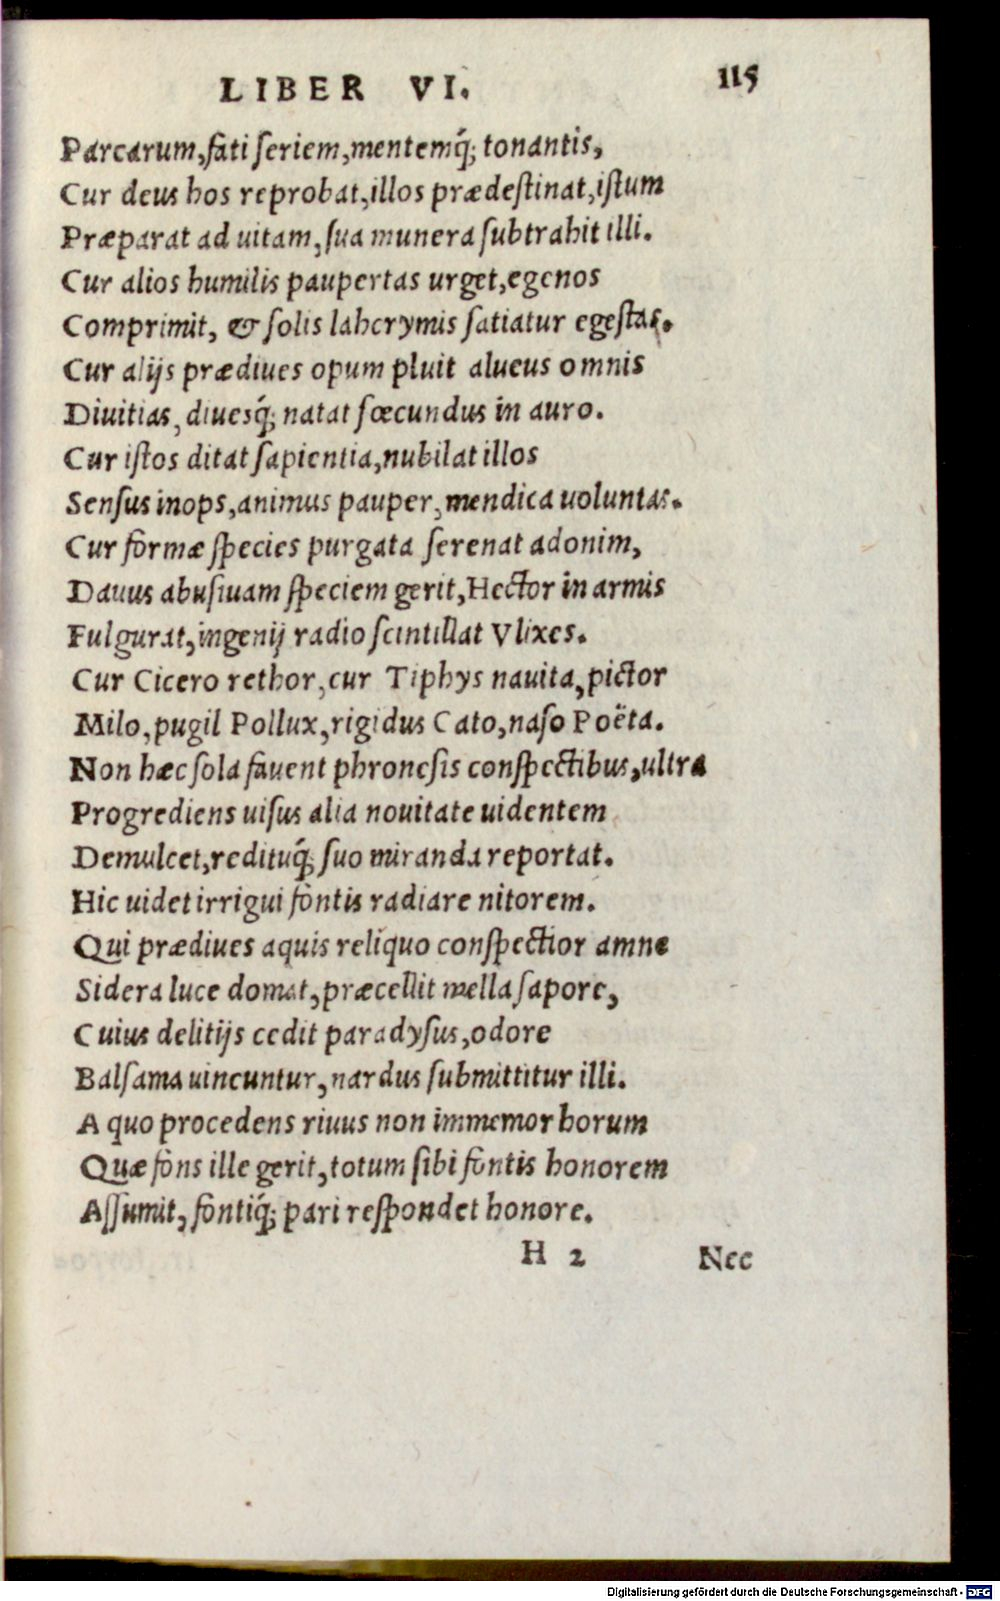 LIBER VI. 115
Parcarum,fati ſeriem,mentemq́; tonantis,
Cur deus hos reprobat,illos prædeſtinat,iſtum
Præparat ad uitam,ſua munera ſubtrahit illi.
Cur alios humilis paupertas urget,egenos
Comprimit, & ſolis lahcrymis ſatiatur egeſtas.
Cur alijs prædiues opum pluit alueus omnis
Diuitias, diuesq́; natat fœcundus in auro.
Cur iſtos ditat ſapientia,nubilat illos
Senſus inops,animus pauper,mendica uoluntas.
Cur formæ ſpecies purgata ſerenat adonim,
Dauus abuſiuam ſpeciem gerit,Hector in armis
Fulgurat,ingenij radio ſcintillat Vlixes.
Cur Cicero rethor,cur Tiphys nauita,pictor
Milo,pugil Pollux,rigidus Cato,naſo Poëta.
Non hæc ſola fauent phroneſis conſpectibus,ultra
Progrediens uiſus alia nouitate uidentem
Demulcet,redituq́; ſuo miranda reportat.
Hic uidet irrigui fontis radiare nitorem.
Qui prædiues aquis reliquo conſpectior amne
Sidera luce domat,præcellit mella ſapore,
Cuius delitijs cedit paradyſus,odore
Balſama uincuntur,nardus ſubmittitur illi.
A quo procedens riuus non immemor horum
Quæ fons ille gerit,totum ſibi fontis honorem
Aſſumit, fontiq́; pari reſpondet honore.
H 2 Nec
Digitalisierung gefördert durch die Deutsche Forschungsgemeinschaft - DFG